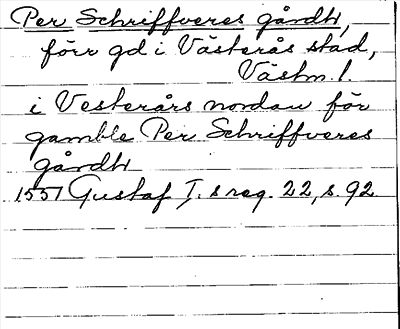 Per Schriffveres gårdh,
förr gd i Västerås stad,
Västm. l.
i Vesterårs nordan för
gamble Per Schriffveres
gårdh
1551 Gustaf I. s reg. 22, s. 92